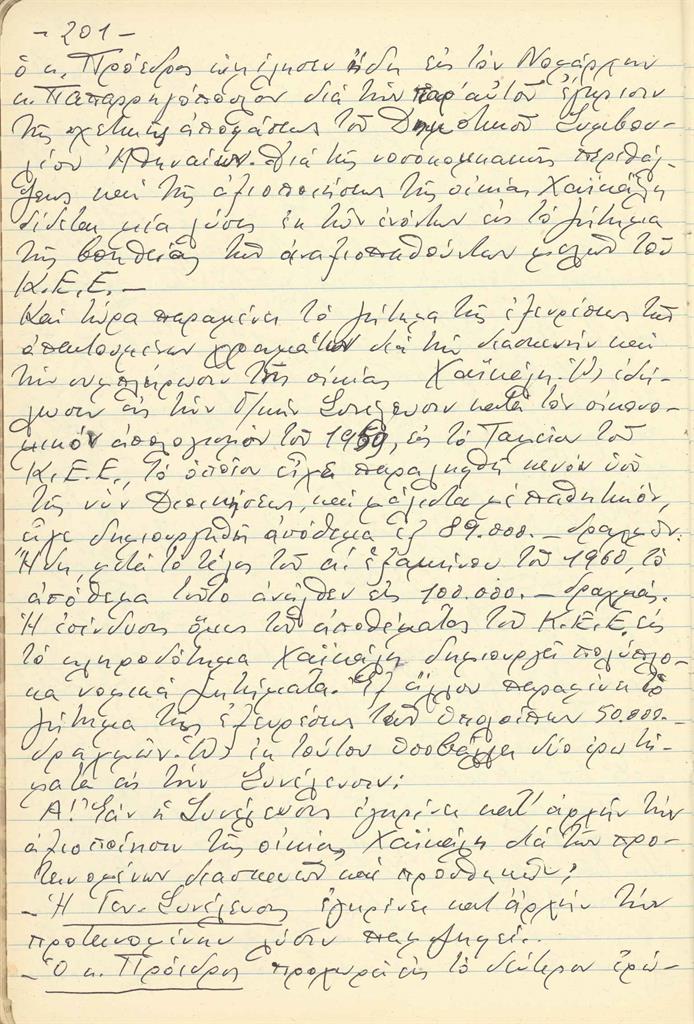 - 201 -
ὁ κ. Πρόεδρος ὡμίλησεν ἤδη εἰς τὸν Νομάρχην
κ. Παπαρρηγόπουλον διὰ τὴν παρ' αὐτοῦ ἔγκρισιν
τῆς σχετικῆς ἀποφάσεως τοῦ Δημοτικοῦ Συμβου-
λίου Ἀθηναίων. Διὰ τῆς νοσοκομειακῆς περιθάλ-
ψεως καὶ τῆς ἀξιοποιήσεως τῆς οἰκίας Χαϊκάλη
δίδεται μία λύσις ἐκ τῶν ἐνόντων εἰς τὸ ζήτημα
τῆς βοηθείας τῶν ἀναξιοπαθούντων μελῶν τοῦ
Κ.Ε.Ε. -
Καὶ τώρα παραμένει τὸ ζήτημα τῆς ἐξευρέσεως τῶν
ἀπαιτουμένων χρημάτων διὰ τὴν διασκευὴν καὶ
τὴν συμπλήρωσιν τῆς οἰκίας Χαϊκάλη. Ὡς ἐδή-
λωσεν εἰς τὴν Γ/κὴν Συνέλευσιν κατὰ τὸν οἰκονο-
μικὸν ἀπολογισμὸν τοῦ 1959, εἰς τὸ Ταμεῖον τοῦ
Κ.Ε.Ε., τὸ ὁποῖον εἶχε παραληφθῆ κενὸν ὑπὸ
τῆς νῦν Διοικήσεως, καὶ μάλιστα μὲ παθητικόν,
εἶχε δημιουργηθῆ ἀπόθεμα ἐξ 89.000.- δραχμῶν.
Ἤδη, μετὰ τὸ τέλος τοῦ α' ἑξαμήνου τοῦ 1960, τὸ
ἀπόθεμα τοῦτο ἀνῆλθεν εἰς 100.000.- δραχμάς.
Ἡ ἐπένδυσις ὅμως τοῦ ἀποθέματος τοῦ Κ.Ε.Ε. εἰς
τὸ κληροδότημα Χαϊκάλη δημιουργεῖ πολύπλο-
κα νομικὰ ζητήματα. Ἐξ ἄλλου παραμένει τὸ
ζήτημα τῆς ἐξευρέσεως τῶν ὑπολοίπων 50.000.-
δραχμῶν. Ὡς ἐκ τούτου ὑποβάλλει δύο ἐρωτή-
ματα εἰς τὴν Συνέλευσιν:
Α! Ἐὰν ἡ Συνέλευσις ἐγκρίνει κατ' ἀρχὴν τὴν
ἀξιοποίησιν τῆς οἰκίας Χαϊκάλη διὰ τῶν προ-
τεινομένων διασκευῶν καὶ προσθηκῶν;
- Ἡ Γεν. Συνέλευσις ἐγκρίνει κατ' ἀρχὴν τὴν
προτεινομένην λύσιν παμψηφεί.
- Ὁ κ. Πρόεδρος προχωρεῖ εἰς τὸ δεύτερον ἐρώ-